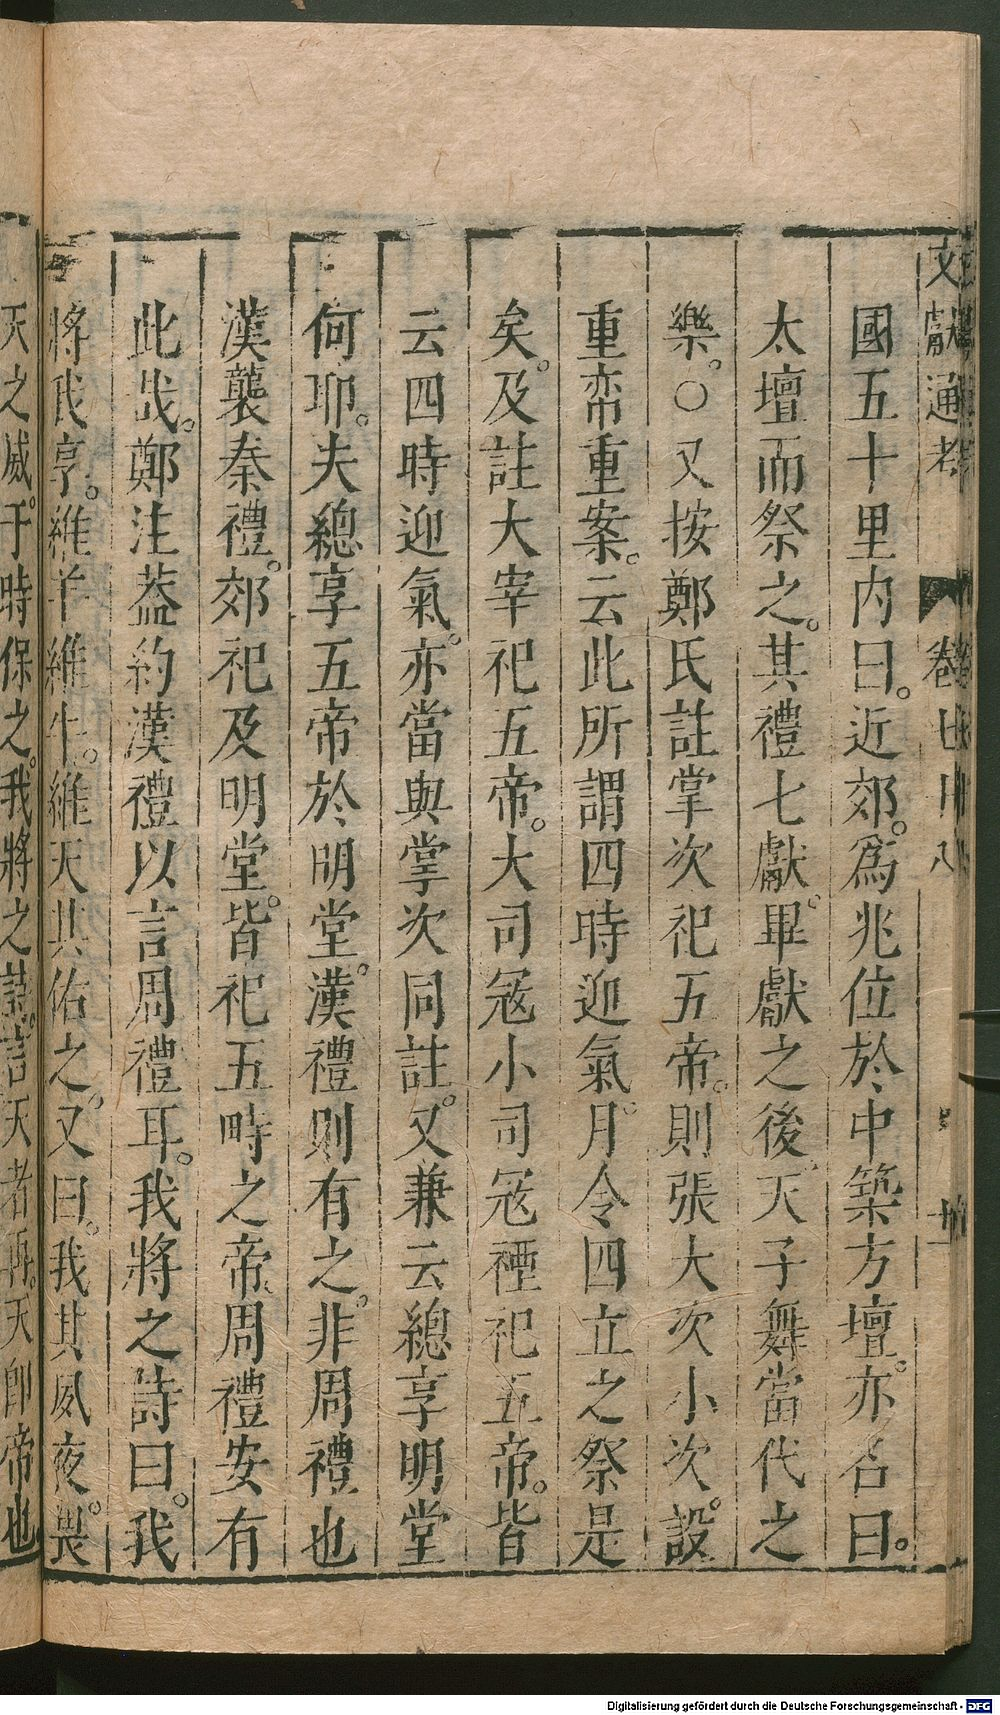 文獻通考 卷七十八
國五十里内曰。近郊。為兆位於中築方壇。亦名曰。
太壇而祭之。其禮七獻。畢獻之後。天子舞當代之
樂。○又按鄭氏註掌次祀五帝。則張大次小次。設
重帟重案。云此所謂四時迎氣。月令四立之祭是
矣。及註大宰祀五帝。大司冦小司冦禋祀五帝。皆
云四時迎氣。亦當與掌次同註。又兼云總享明堂
何耶。夫總享五帝於明堂。漢禮則有之。非周禮也
漢襲秦禮。郊祀及明堂。皆祀五畤之帝。周禮安有
此哉。鄭注葢約漢禮以言周禮耳。我將之詩曰。我
將我享。維羊維牛。維天其佑之。又曰。我其夙夜。畏
天之威。于時保之。我將之詩。言天者再。天卽帝也
Digitalisierung gefördert durch die Deutsche Forschungsgemeinschaft - DFG